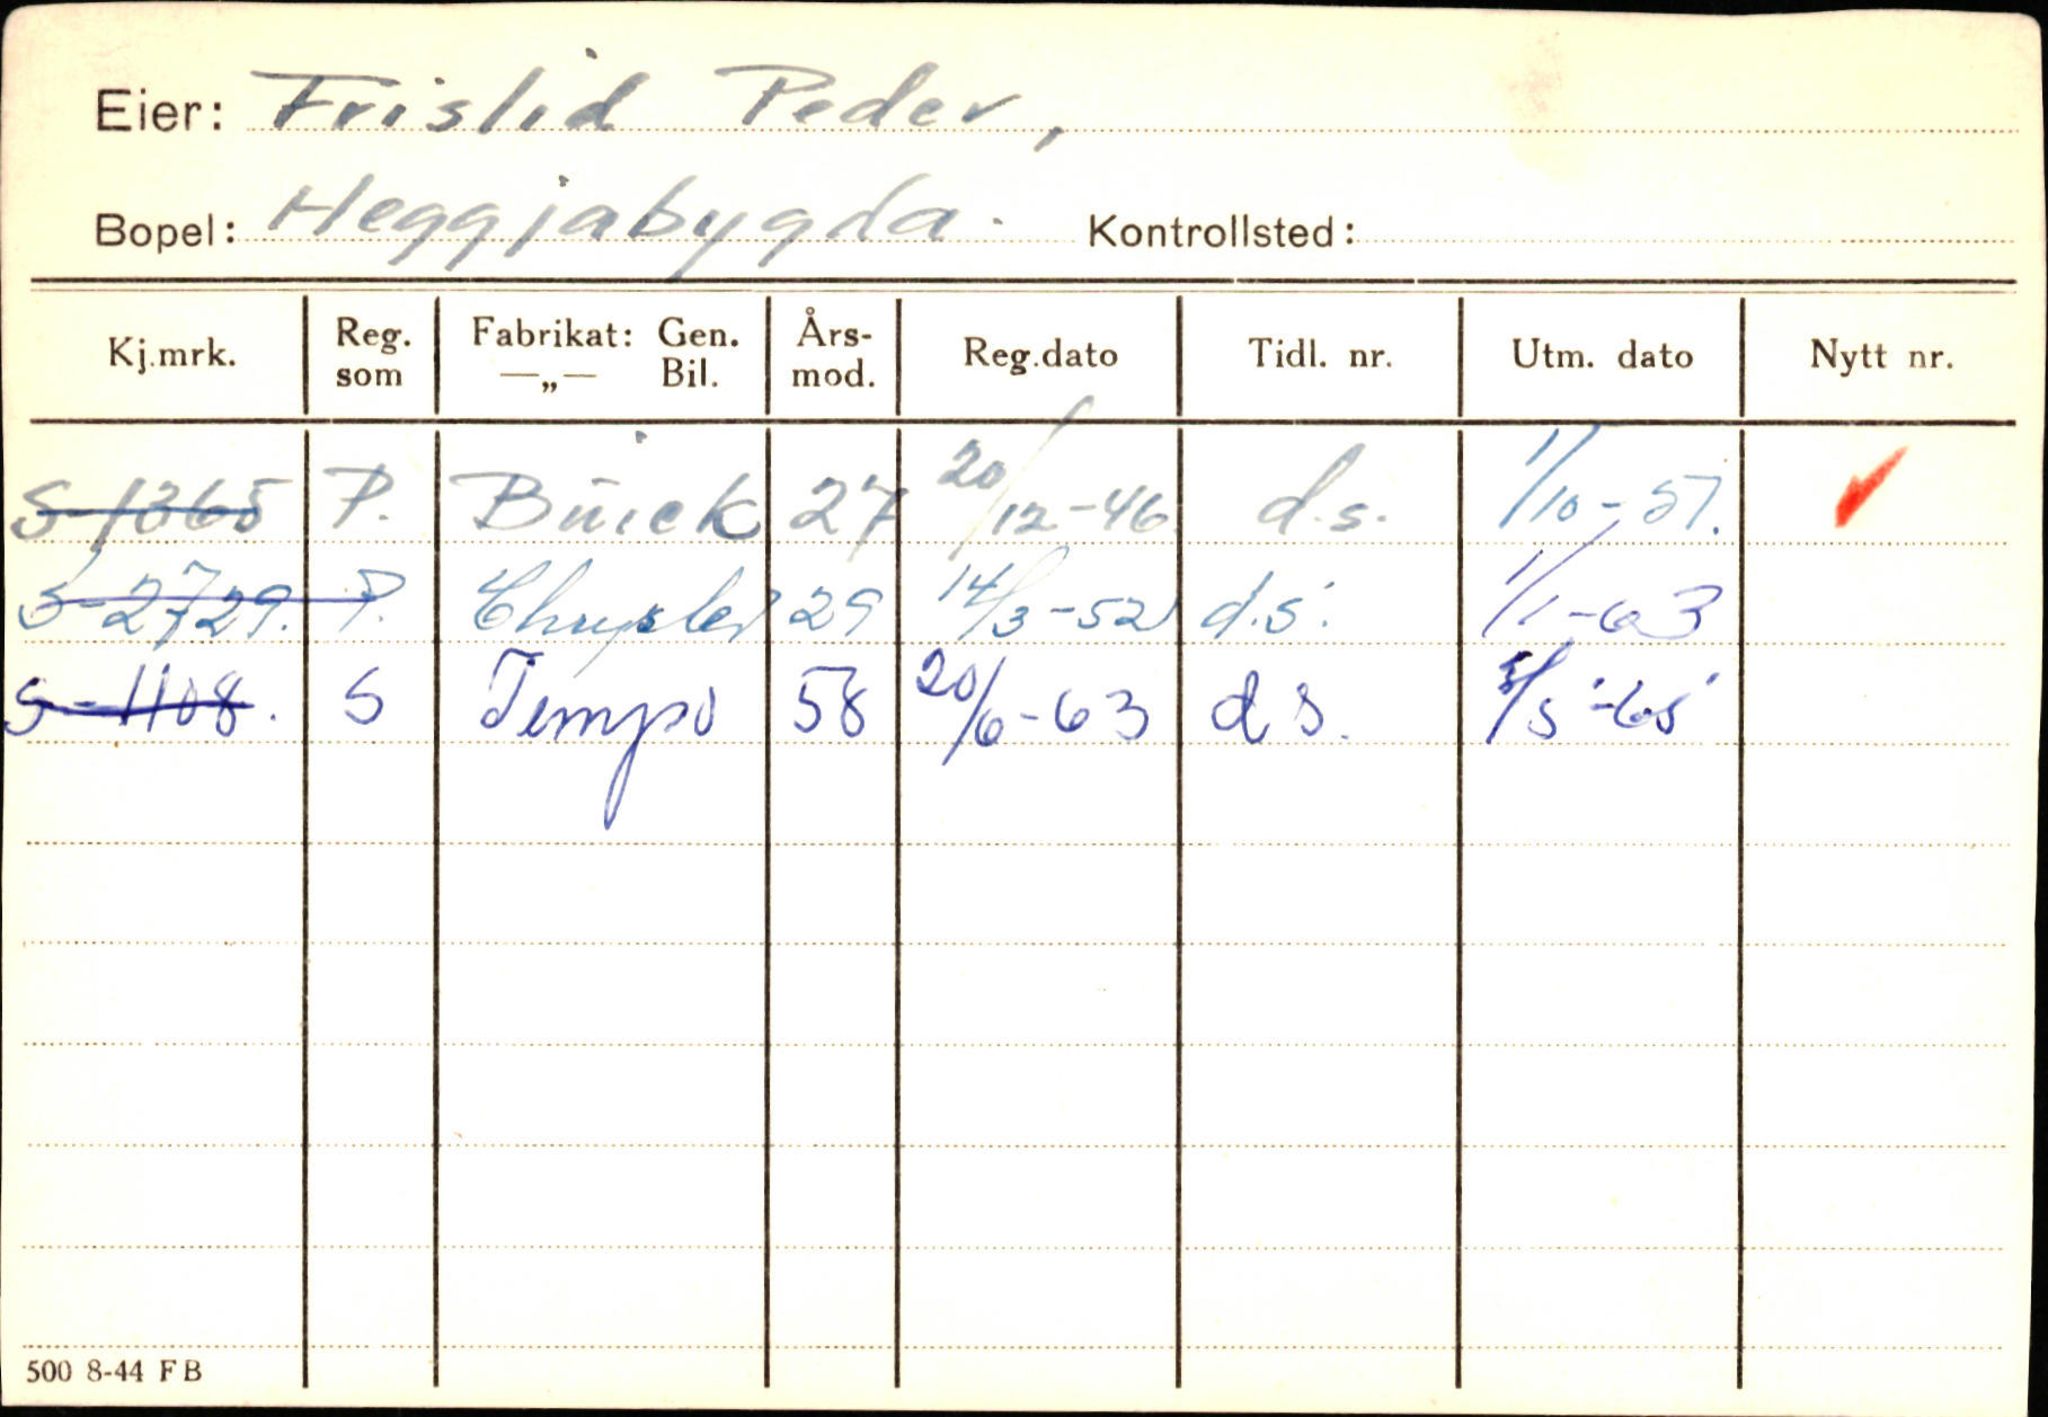 Eier: Frislid Peder,
Bopel: Heggjabygda. Kontrollsted:
Kj.mrk. Reg. som Fabrikat: Gen. —„— Bil. Års-mod. Reg.dato Tidl. nr. Utm. dato Nytt nr.
S-1365 P. Buick 27 20/12-46. d.s. 1/10-51.
S-2729. P. Chrysler 29 14/3-52 d.s. 1/1-63
S-1108. S Tempo 58 20/6-63 d s. 5/5-65
500 8-44 FB